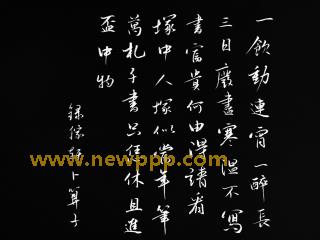 一飲動連宵一醉長
三日廢盡寒溫不寫
書富貴何由得請看
塚中人塚似當年筆
萬札千書只恁休且進
盃中物
録稼軒卜算子
www.newppp.com